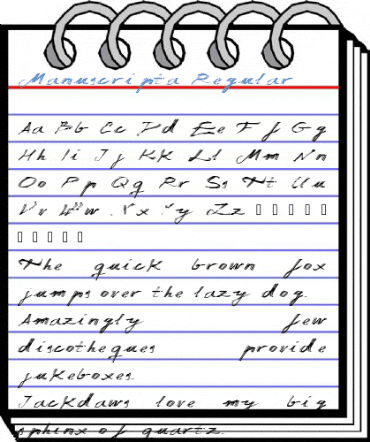 Manuscripta Regular
Aa Bb Cc Dd Ee Ff Gg
Hh Ii Jj Kk Ll Mm Nn
Oo Pp Qq Rr Ss Tt Uu
Vv Ww Xx Yy Zz
The quick brown fox
jumps over the lazy dog.
Amazingly few
discotheques provide
jukeboxes.
Jackdaws love my big
sphinx of quartz.